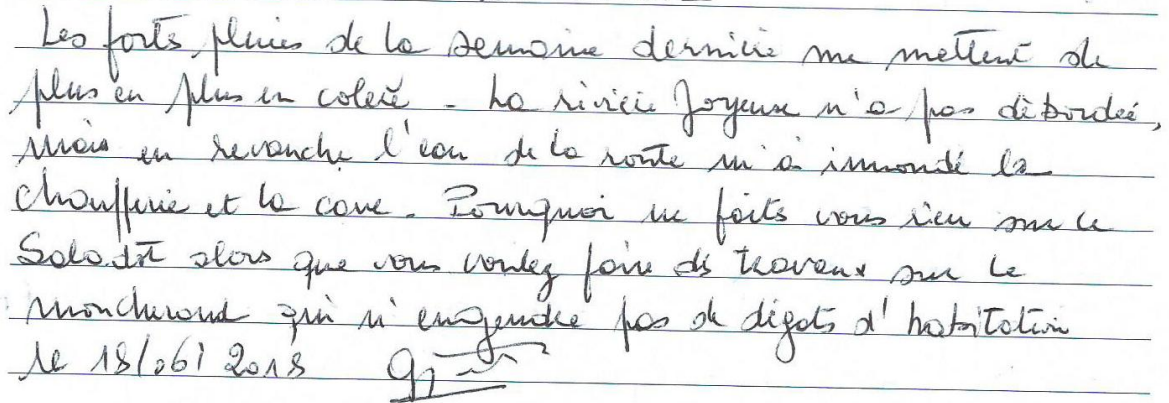 Les forts pluies de la semaine dernière me mettent de
plus en plus en colère - La rivière Joyeuse n'a pas débordée,
mais en revanche l'eau de la route m'a innondé la
chaufferie et la cave. Pourquoi ne faits vous rien sur le
Saladot alors que vous voulez faire des travaux sur le
moncherand qui n'engendre pas de dégats d'habitation
le 18/06/2018